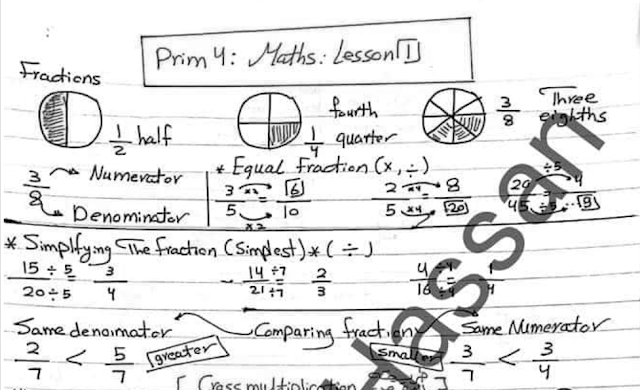 Prim 4: Maths: Lesson 1
Fractions
1/2 half
fourth
1/4 quarter
3/8 Three eighths
3/8 Numerator
Denominator
* Equal Fraction (x, ÷)
3/5 x2 x2 = 6/10
2/5 x4 x4 = 8/20
20/45 ÷5 ÷5 = 4/9
* Simplfying The fraction (Simplest) * (÷)
15 ÷ 5 / 20 ÷ 5 = 3/4
- 14 ÷7 / 21 ÷7 = 2/3
4 ÷4 / 16 ÷4 = 1/4
Same denomator Comparing fraction Same Numerator
2/7 < 5/7 greater smaller 3/7 < 3/4
[ Cross multiplication
hassan